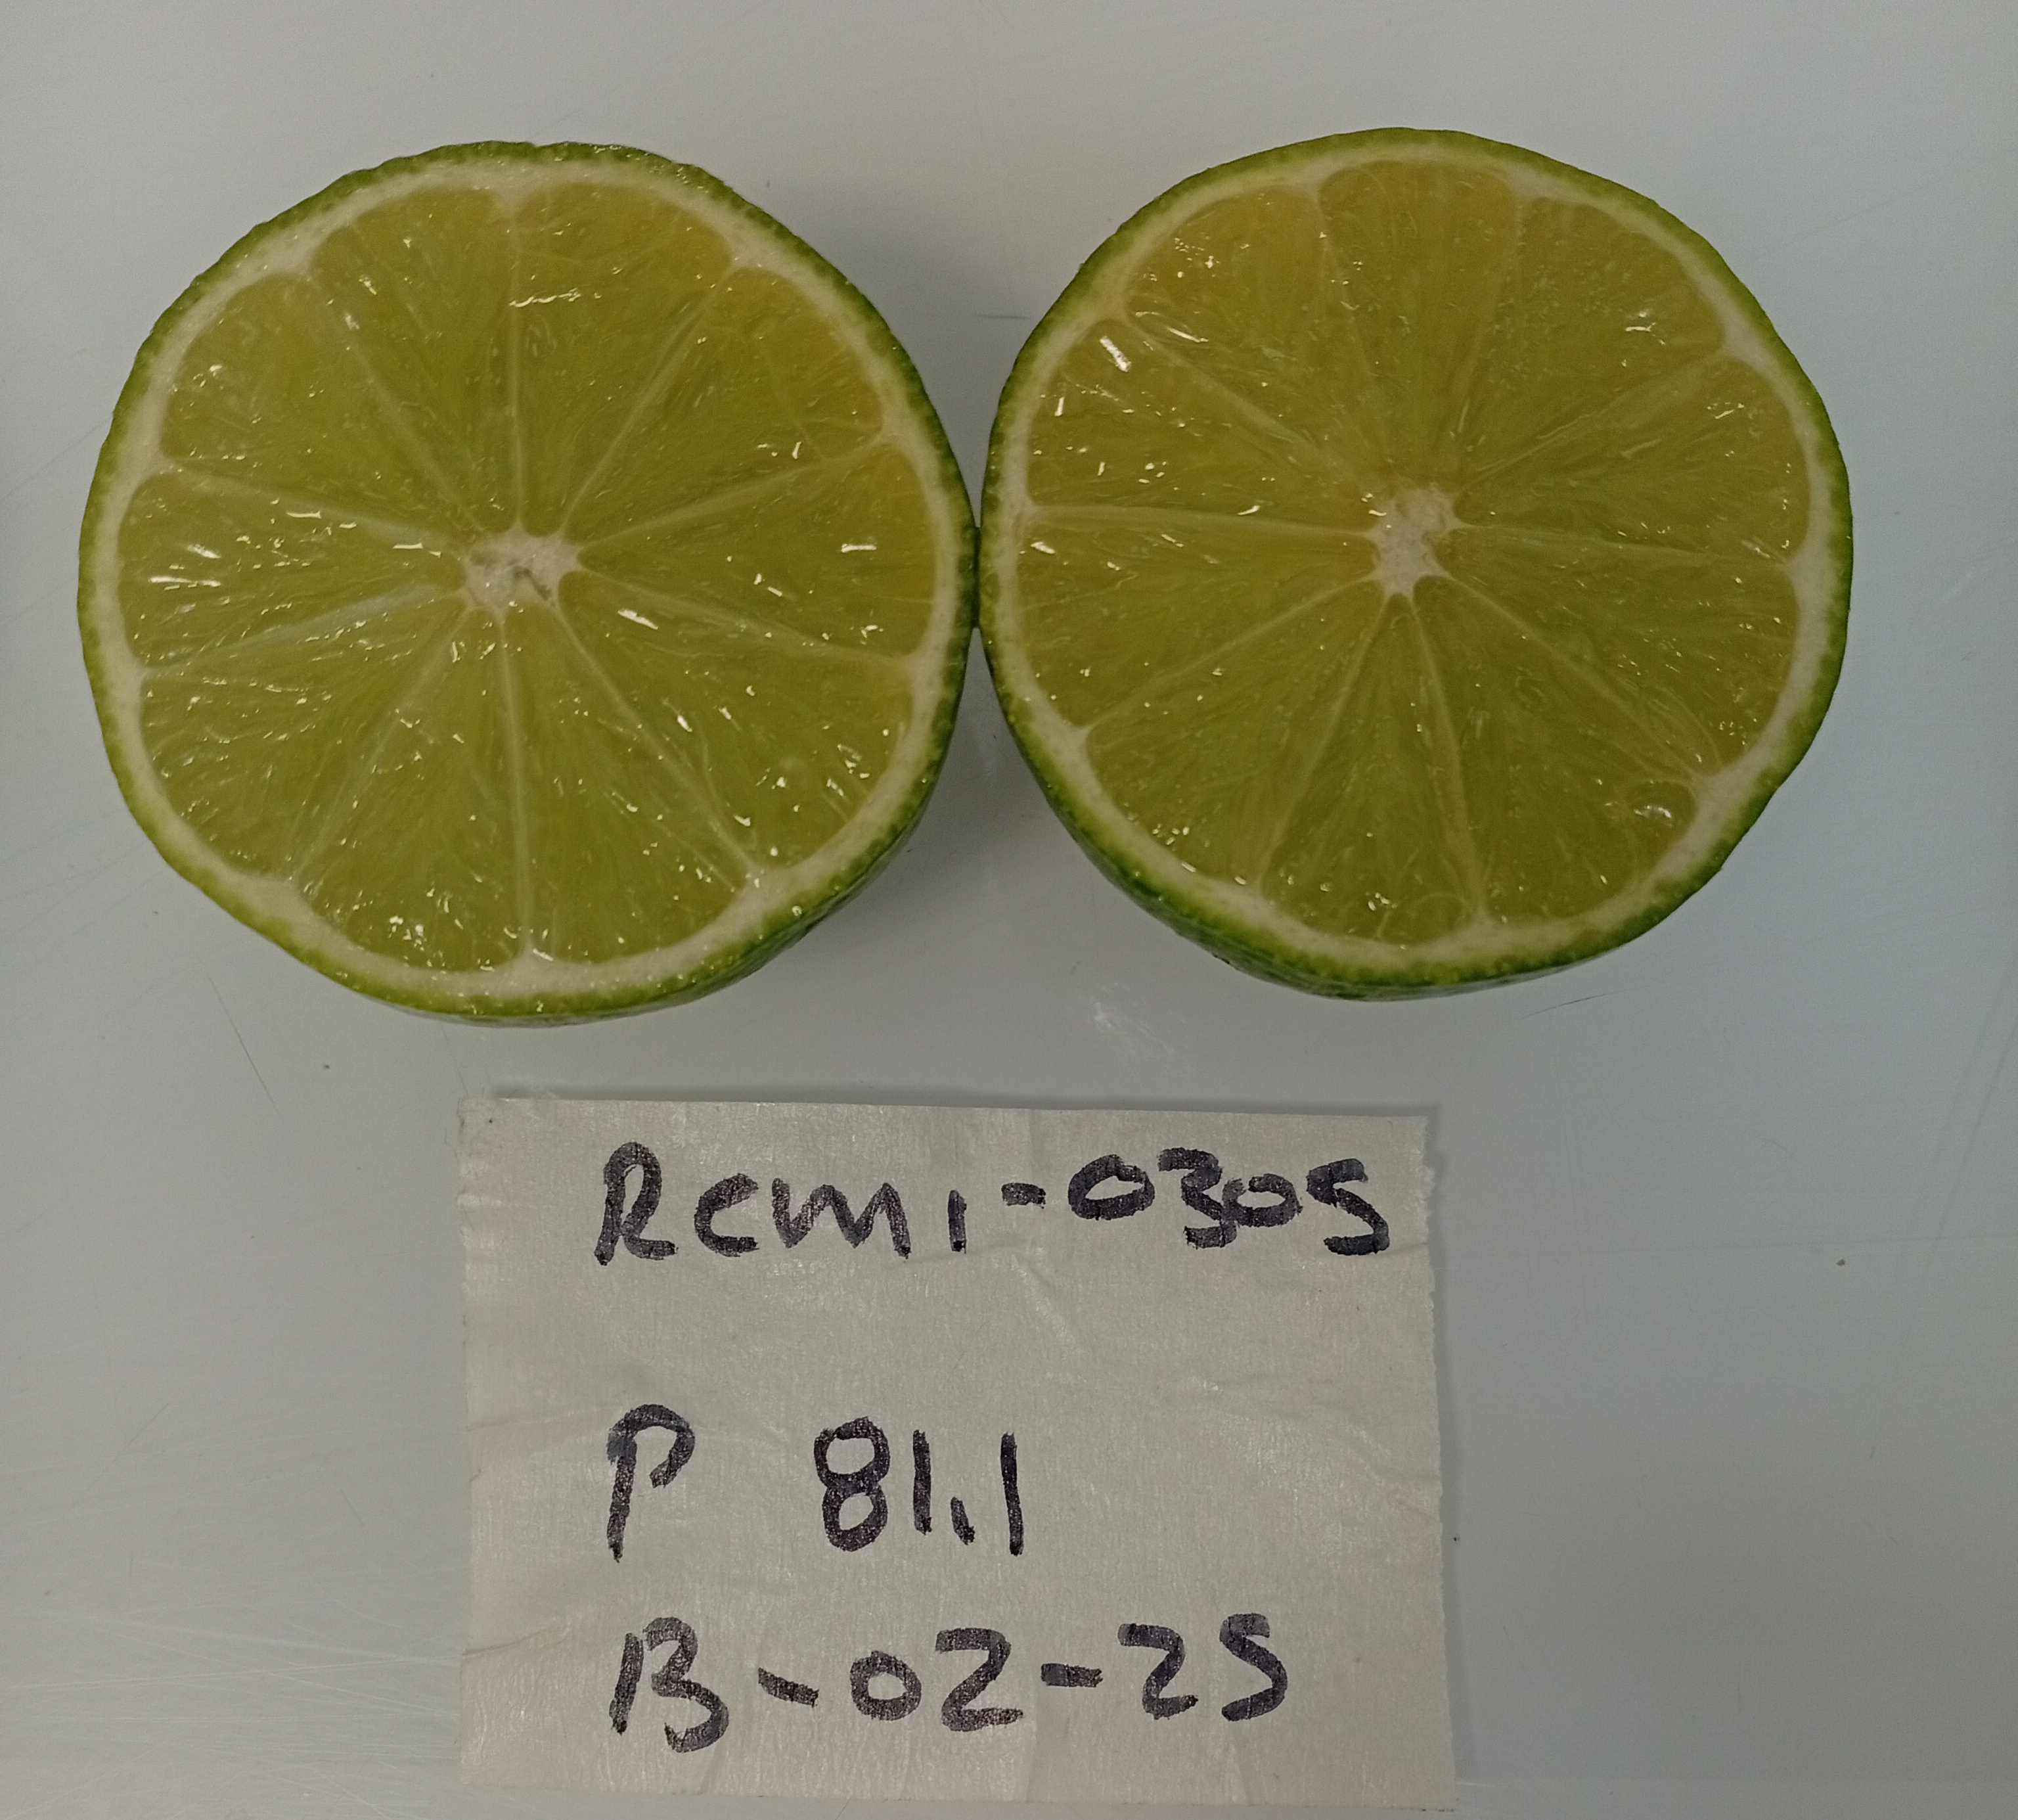 Rcmi-0305
P 81.1
13-02-25